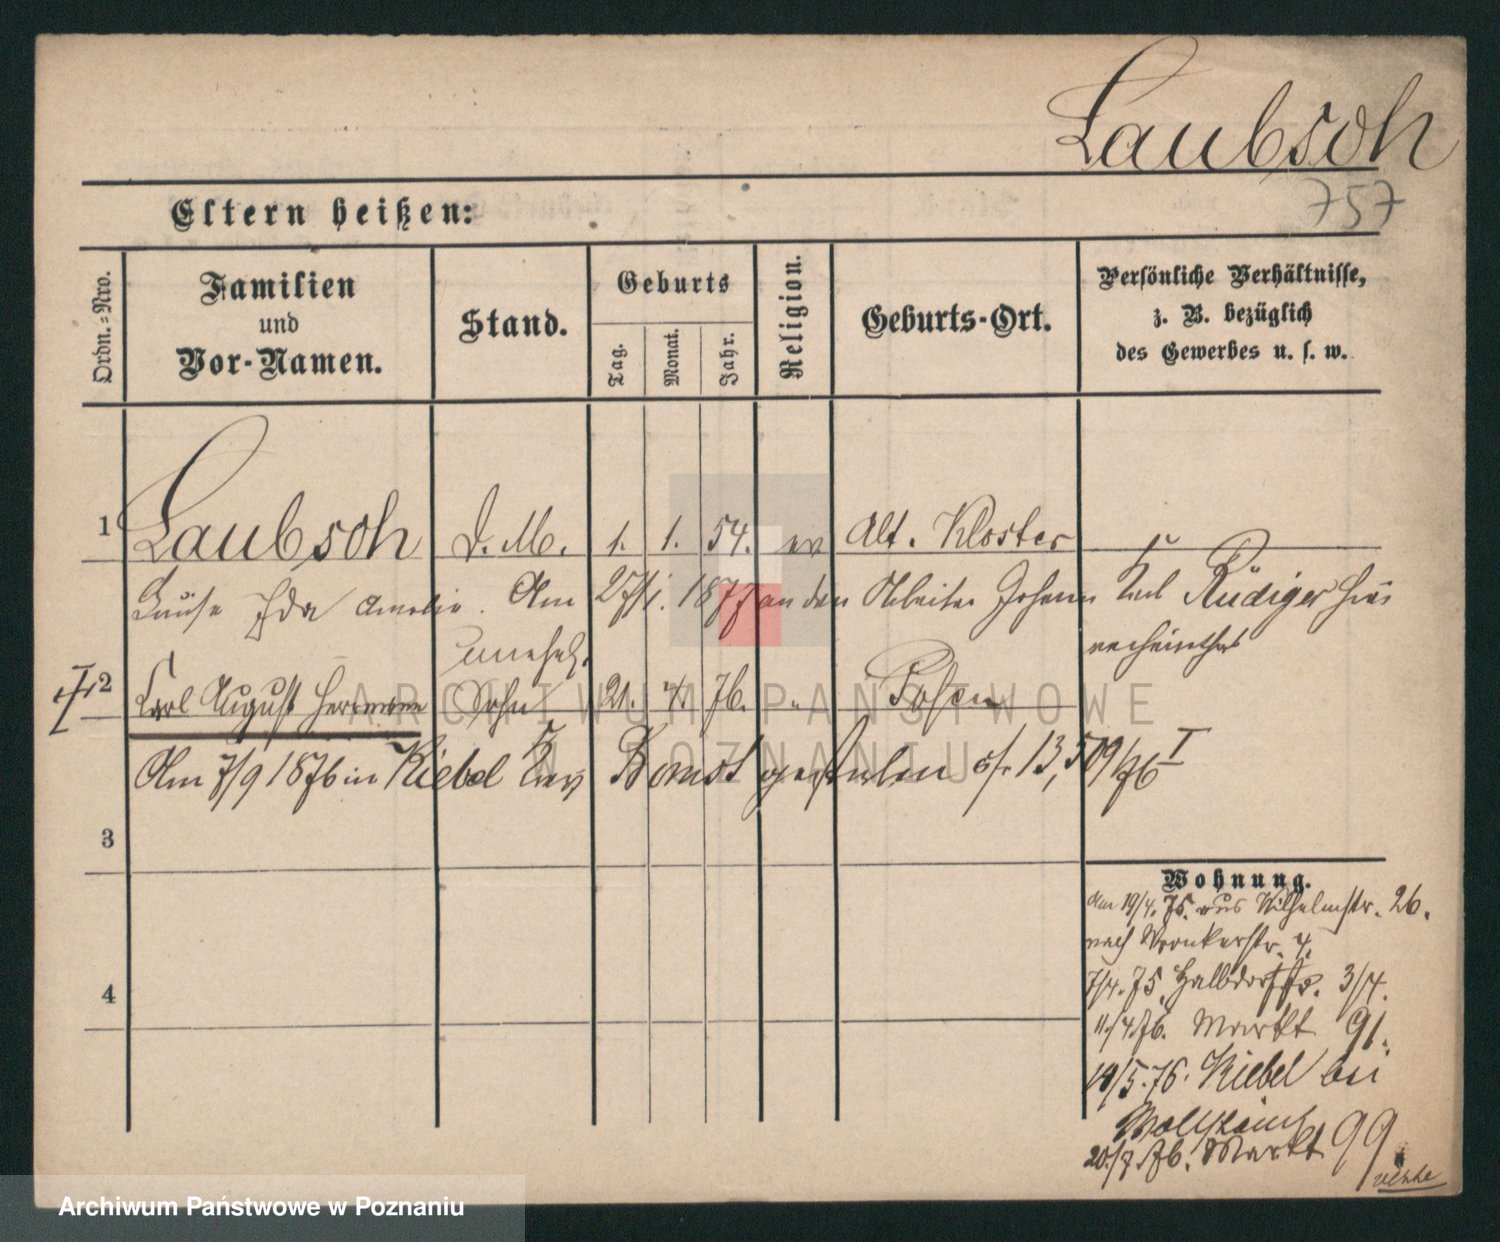 Laubsch
757
Eltern heißen:
Ordn.-Nro.
Familien
und
Vor-Namen.
Stand.
Geburts
Tag.
Monat.
Jahr.
Religion.
Geburts-Ort.
Persönliche Verhältnisse,
z. B. bezüglich
des Gewerbes u. s. w.
1 Laubsch D. M. 1. 1. 54. ev Alt. Kloster
Luise Ida Amalie. Am 27/1. 1877 an den Arbeiter Johann Karl Rüdiger hier
verheirathet
unehel.
2 Karl August Herrmann Sohn 21. 4. 76. " Posen
Am 7/9 1876 in Kiebel Krs Bomst gestorben cf. 13,509/76 I
3
4
Wohnung.
Am 19/4. 75. aus Wilhelmstr. 26.
nach Wronkerstr. 4.
7/4. 75. Halbdorfstr. 3/4.
11./4. 76. Markt 91.
19/5. 76. Kiebel bei
Wollstein
20./7. 76. Markt 99
ARCHIWUM PAŃSTWOWE
W POZNANIU
Archiwum Państwowe w Poznaniu